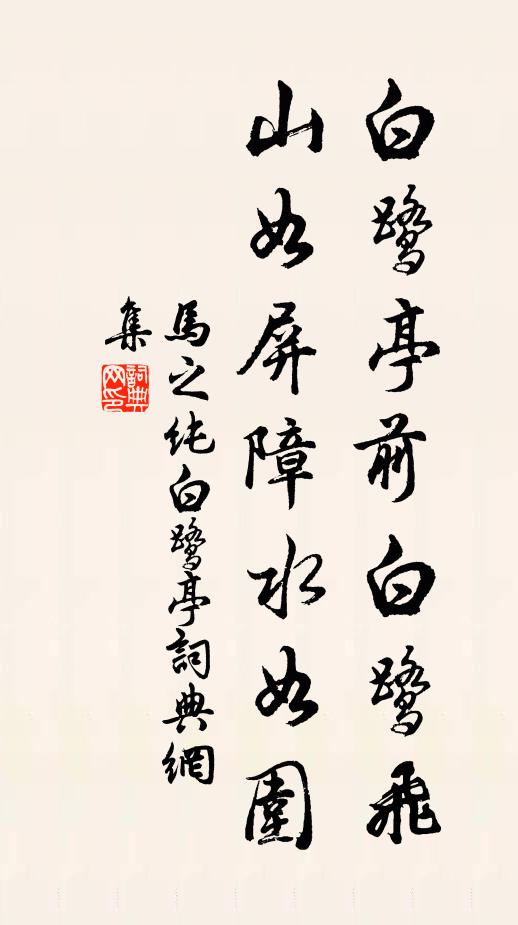 白鷺亭前白鷺飛
山如屏障水如圍
馬之純白鷺亭詞典網
集
詞典網印